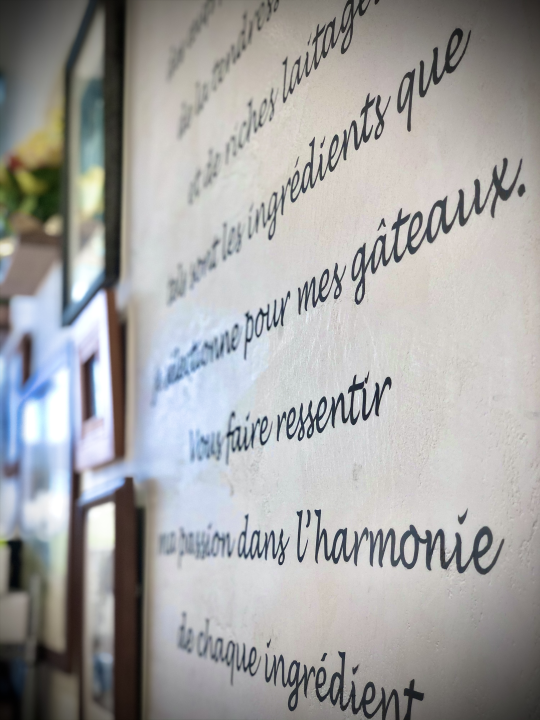 de la tendresse
et de riches laitages
tels sont les ingrédients que
je sélectionne pour mes gâteaux.
Vous faire ressentir
ma passion dans l'harmonie
de chaque ingrédient